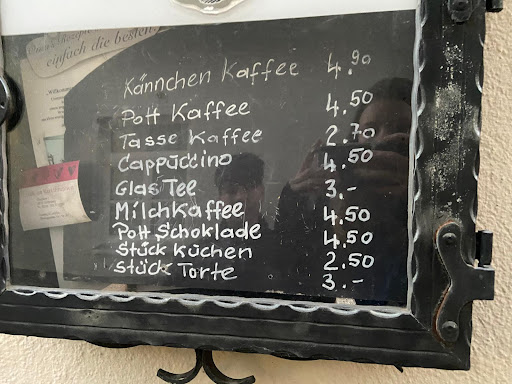 einfach die besten
Kännchen Kaffee 4.90
Pott Kaffee 4.50
Tasse Kaffee 2.70
Cappuccino 4.50
Glas Tee 3.-
Milchkaffee 4.50
Pott Schoklade 4.50
Stück Kuchen 2.50
Stück Torte 3.-